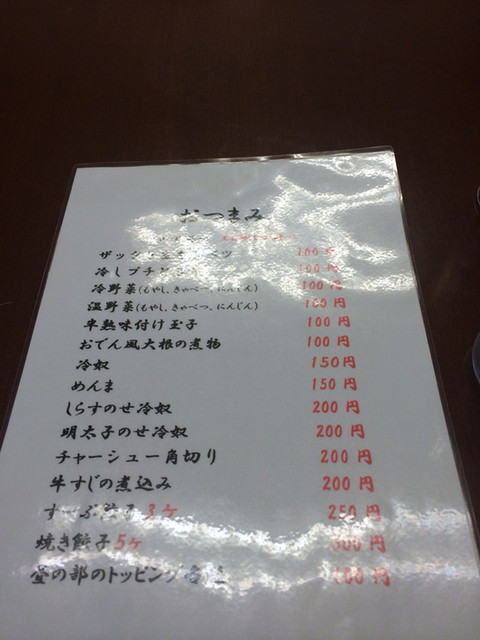 おつまみ
ザッ ツ 100円
冷しプチ 100円
冷野菜(もやし、きゃべつ、にんじん) 100円
温野菜(もやし、きゃべつ、にんじん) 100円
半熟味付け玉子 100円
おでん風大根の煮物 100円
冷奴 150円
めんま 150円
しらすのせ冷奴 200円
明太子のせ冷奴 200円
チャーシュー角切り 200円
牛すじの煮込み 200円
すーぷ餃子3ヶ 250円
焼き餃子5ヶ 300円
昼の部のトッピング各上 100円